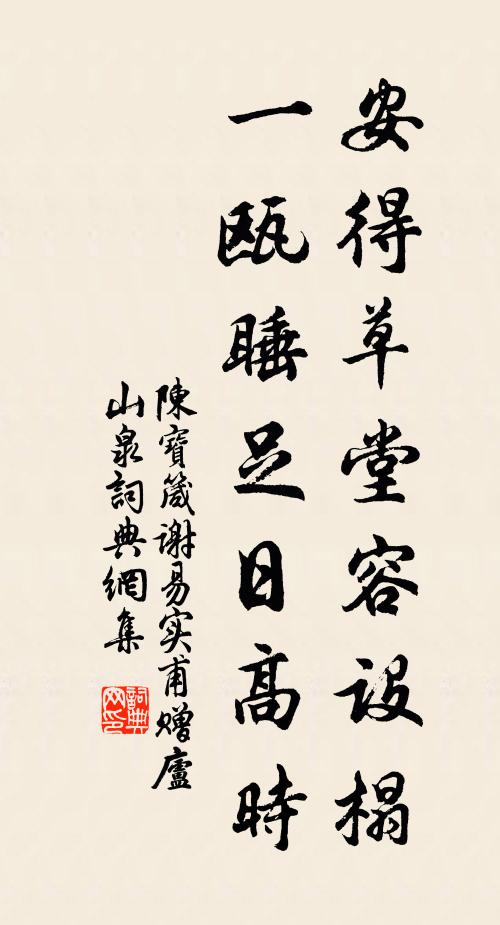 安得草堂容設榻
一甌睡足日高時
陳寶箴謝易实甫赠廬
山泉詞典網集
詞典网印